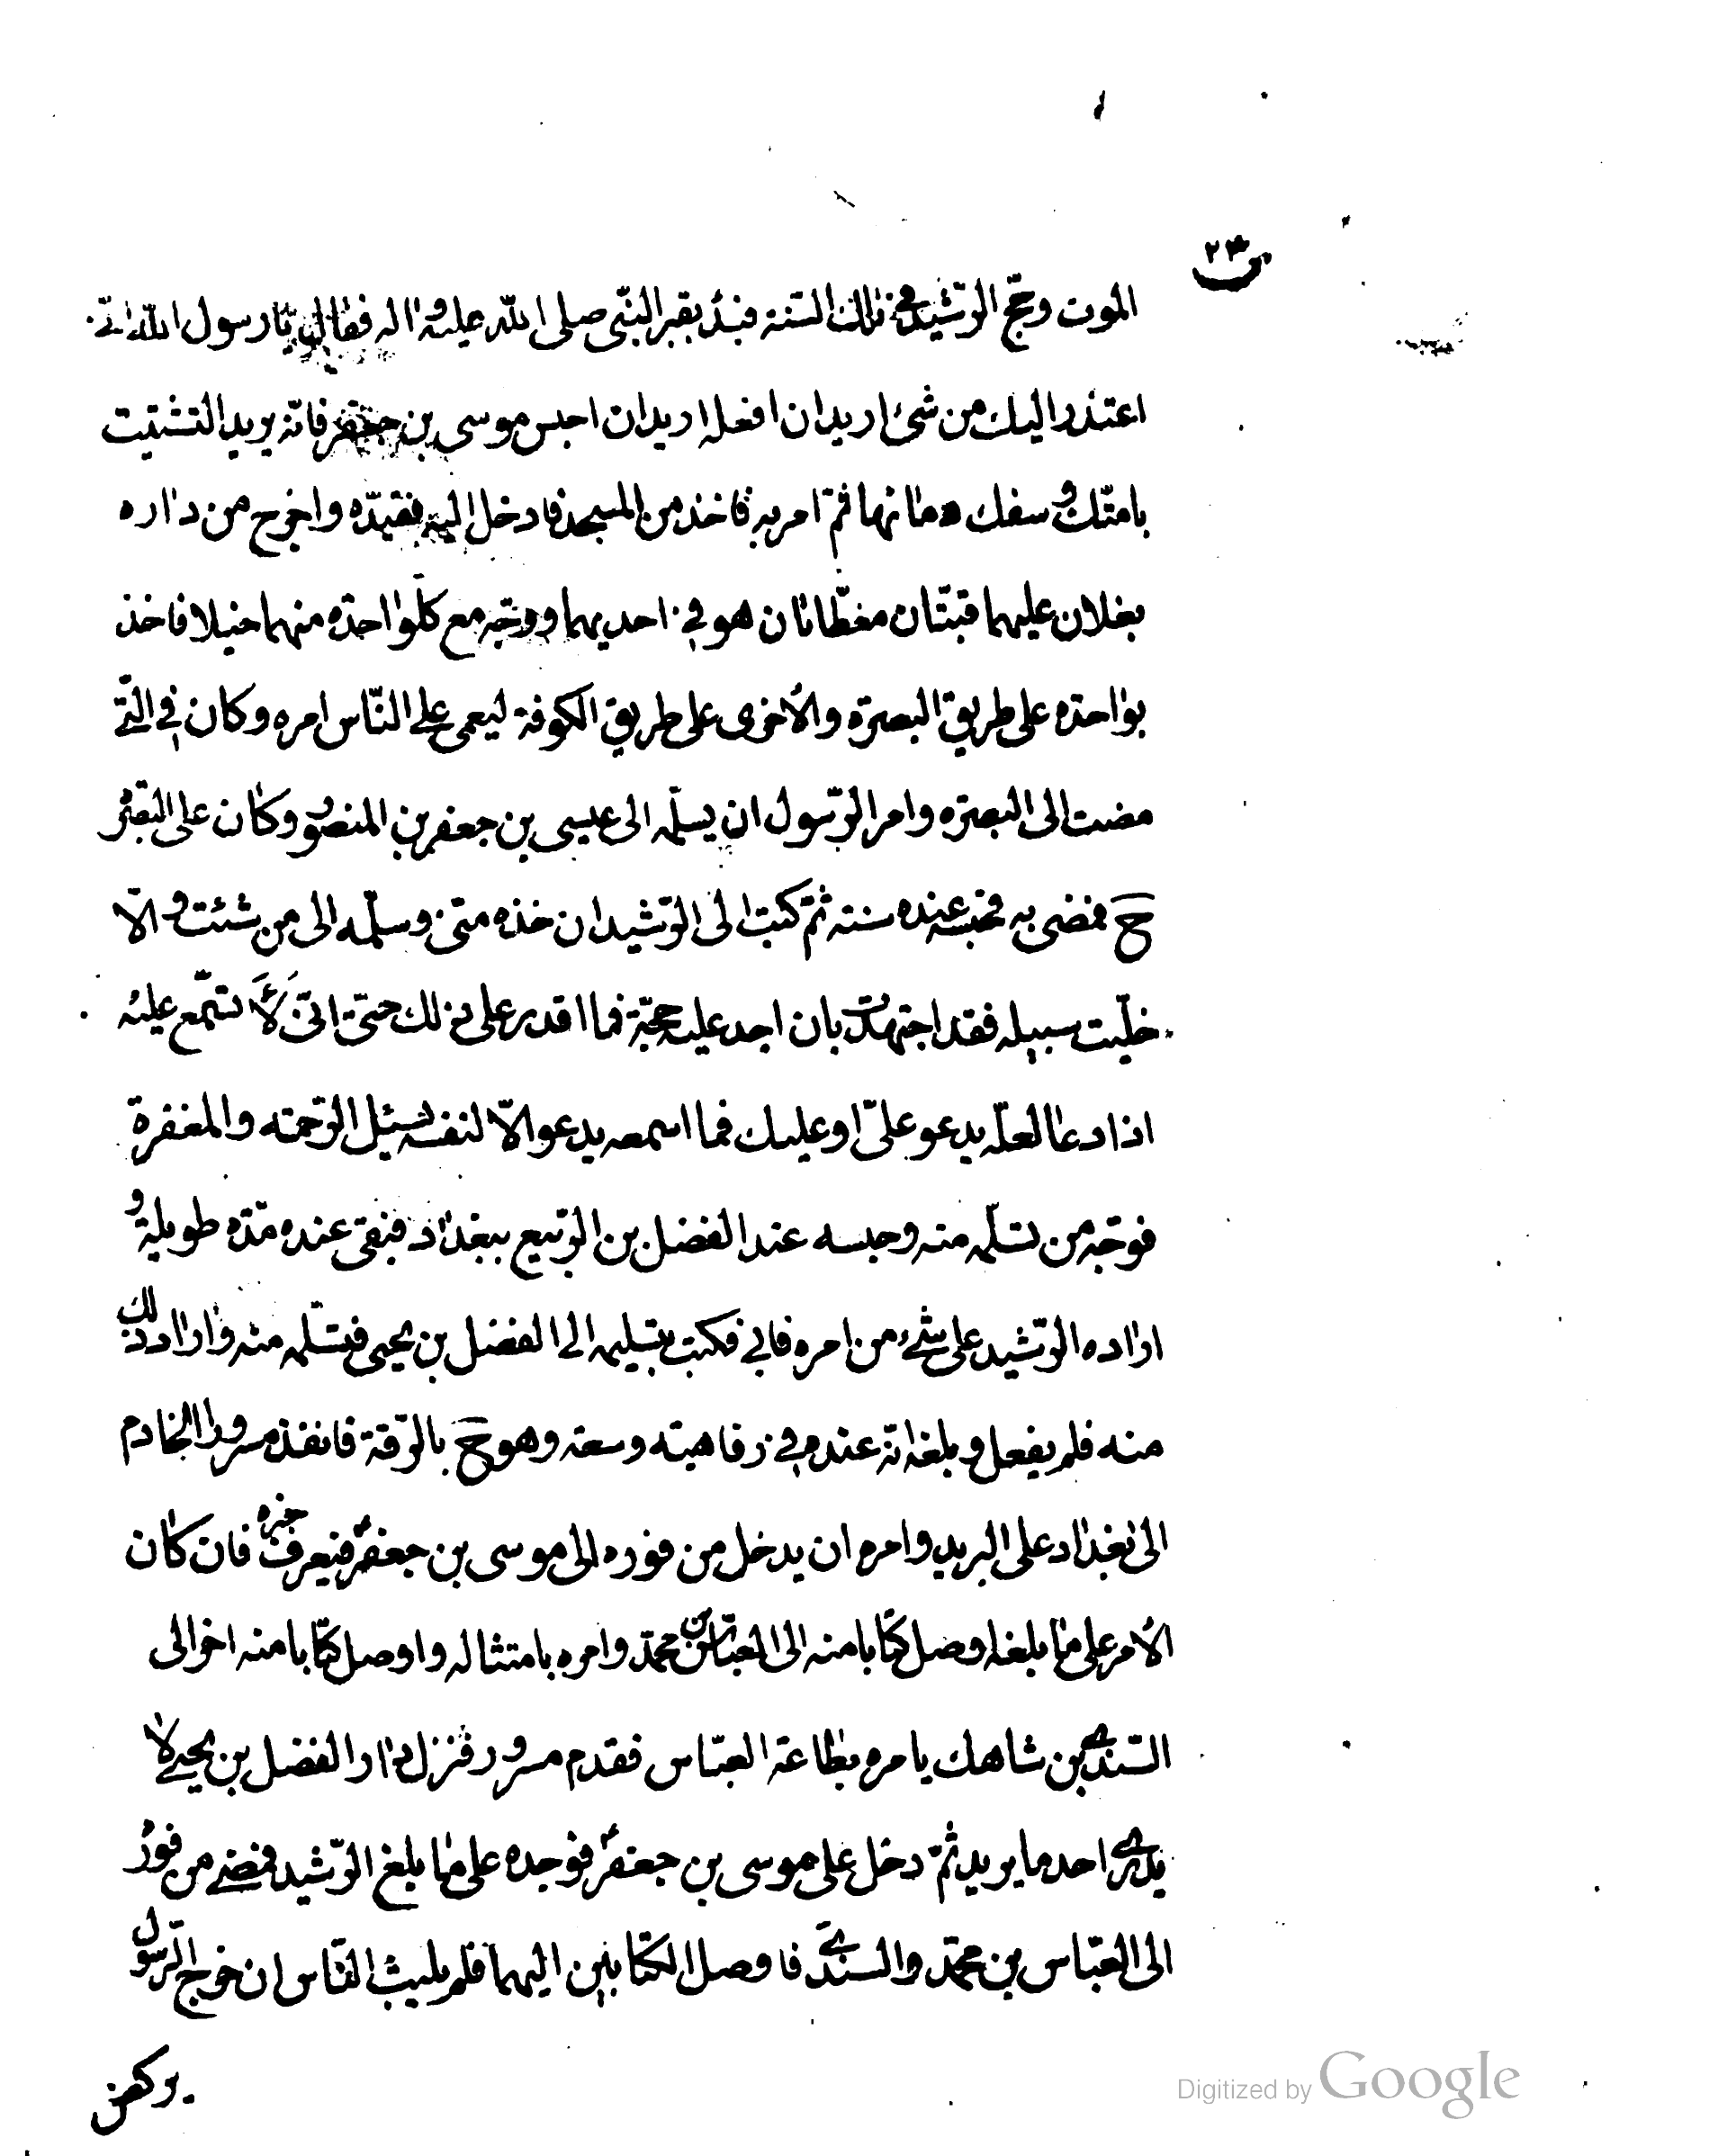 ٢٣
الموت وحجّ الرّشيد في ذلك السّنة فبدء بقبر النّبى صلى الله عليه واله فقال يا رسول الله انّى
اعتذر اليك من شئ اريد ان افعله اريد ان احبس موسى بن جعفر فانّه يريد التّشتيت
بامّتك وسفك دمائها ثمّ امر به فاخذ من المسجد فادخل اليه فقيّده واخرج من داره
بغلان عليهما قبّتان مغطّاتان هو فى احديهما ووجّه مع كلّ واحدة منهما خيلا فاخذ
بواحدة على طريق البصرة والأخرى على طريق الكوفة ليعمى على النّاس امره وكان فى الّتى
مضت الى البصرة وامر الرّسول ان يسلّمه الى عيسى بن جعفر بن المنصور وكان على البصرة
ح فمضى به فحبسه عنده سنة ثمّ كتب الى الرّشيد ان خذه منّى وسلّمه الى من شئت والّا
خلّيت سبيله فقد اجتهدت بان اجد عليه حجّة فما اقدر على ذلك حتّى انّى لَأَتسمّع عليه
اذا دعا لعلّه يدعو علىّ او عليك فما اسمعه يدعو الّا لنفسه يسئل الرّحمة والمغفرة
فوجّه من تسلّمه منه وحبسه عند الفضل بن الرّبيع ببغداد فبقى عنده مدّة طويلة و
اراده الرّشيد على شئ من امره فابى فكتب بتسليمه الى الفضل بن يحيى فتسلّمه منه واراد ذلك
منه فلم يفعل وبلغه انّه عنده فى رفاهية وسعة وهو ح بالرّقة فانفذ مسرور الخادم
الى بغداد على البريد وامره ان يدخل من فوره الى موسى بن جعفر فيعرف خبره فان كان
الأمر على ما بلغه اوصل كتابا منه الى العبّاس بن محمّد وامره بامتثاله واوصل كتابا منه اخر الى
السّندى بن شاهك يامره بطاعة العبّاس فقدم مسرور فنزل دار الفضل بن يحيى لا
يدرى احد ما يريد ثمّ دخل على موسى بن جعفر فوجده على ما بلغ الرّشيد فمضى من فوره
الى العبّاس بن محمّد والسندى فاوصل الكتابين اليهما فلم يلبث النّاس ان خرج الرّسول
يركض
Digitized by Google